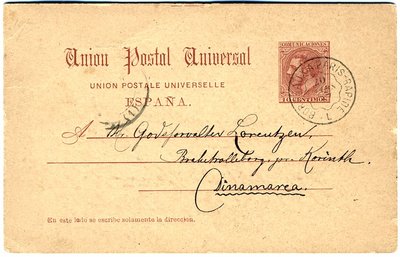 Union Postal Universal
UNION POSTALE UNIVERSELLE
ESPAÑA.
COMUNICACIONES
10 CENTIMOS
PARIS-RAPIDE
A M. Godsforvalter Lorentzen,
Brahetrolleborg, per Korinth.
Dinamarca.
En este lado se escribe solamente la direccion.